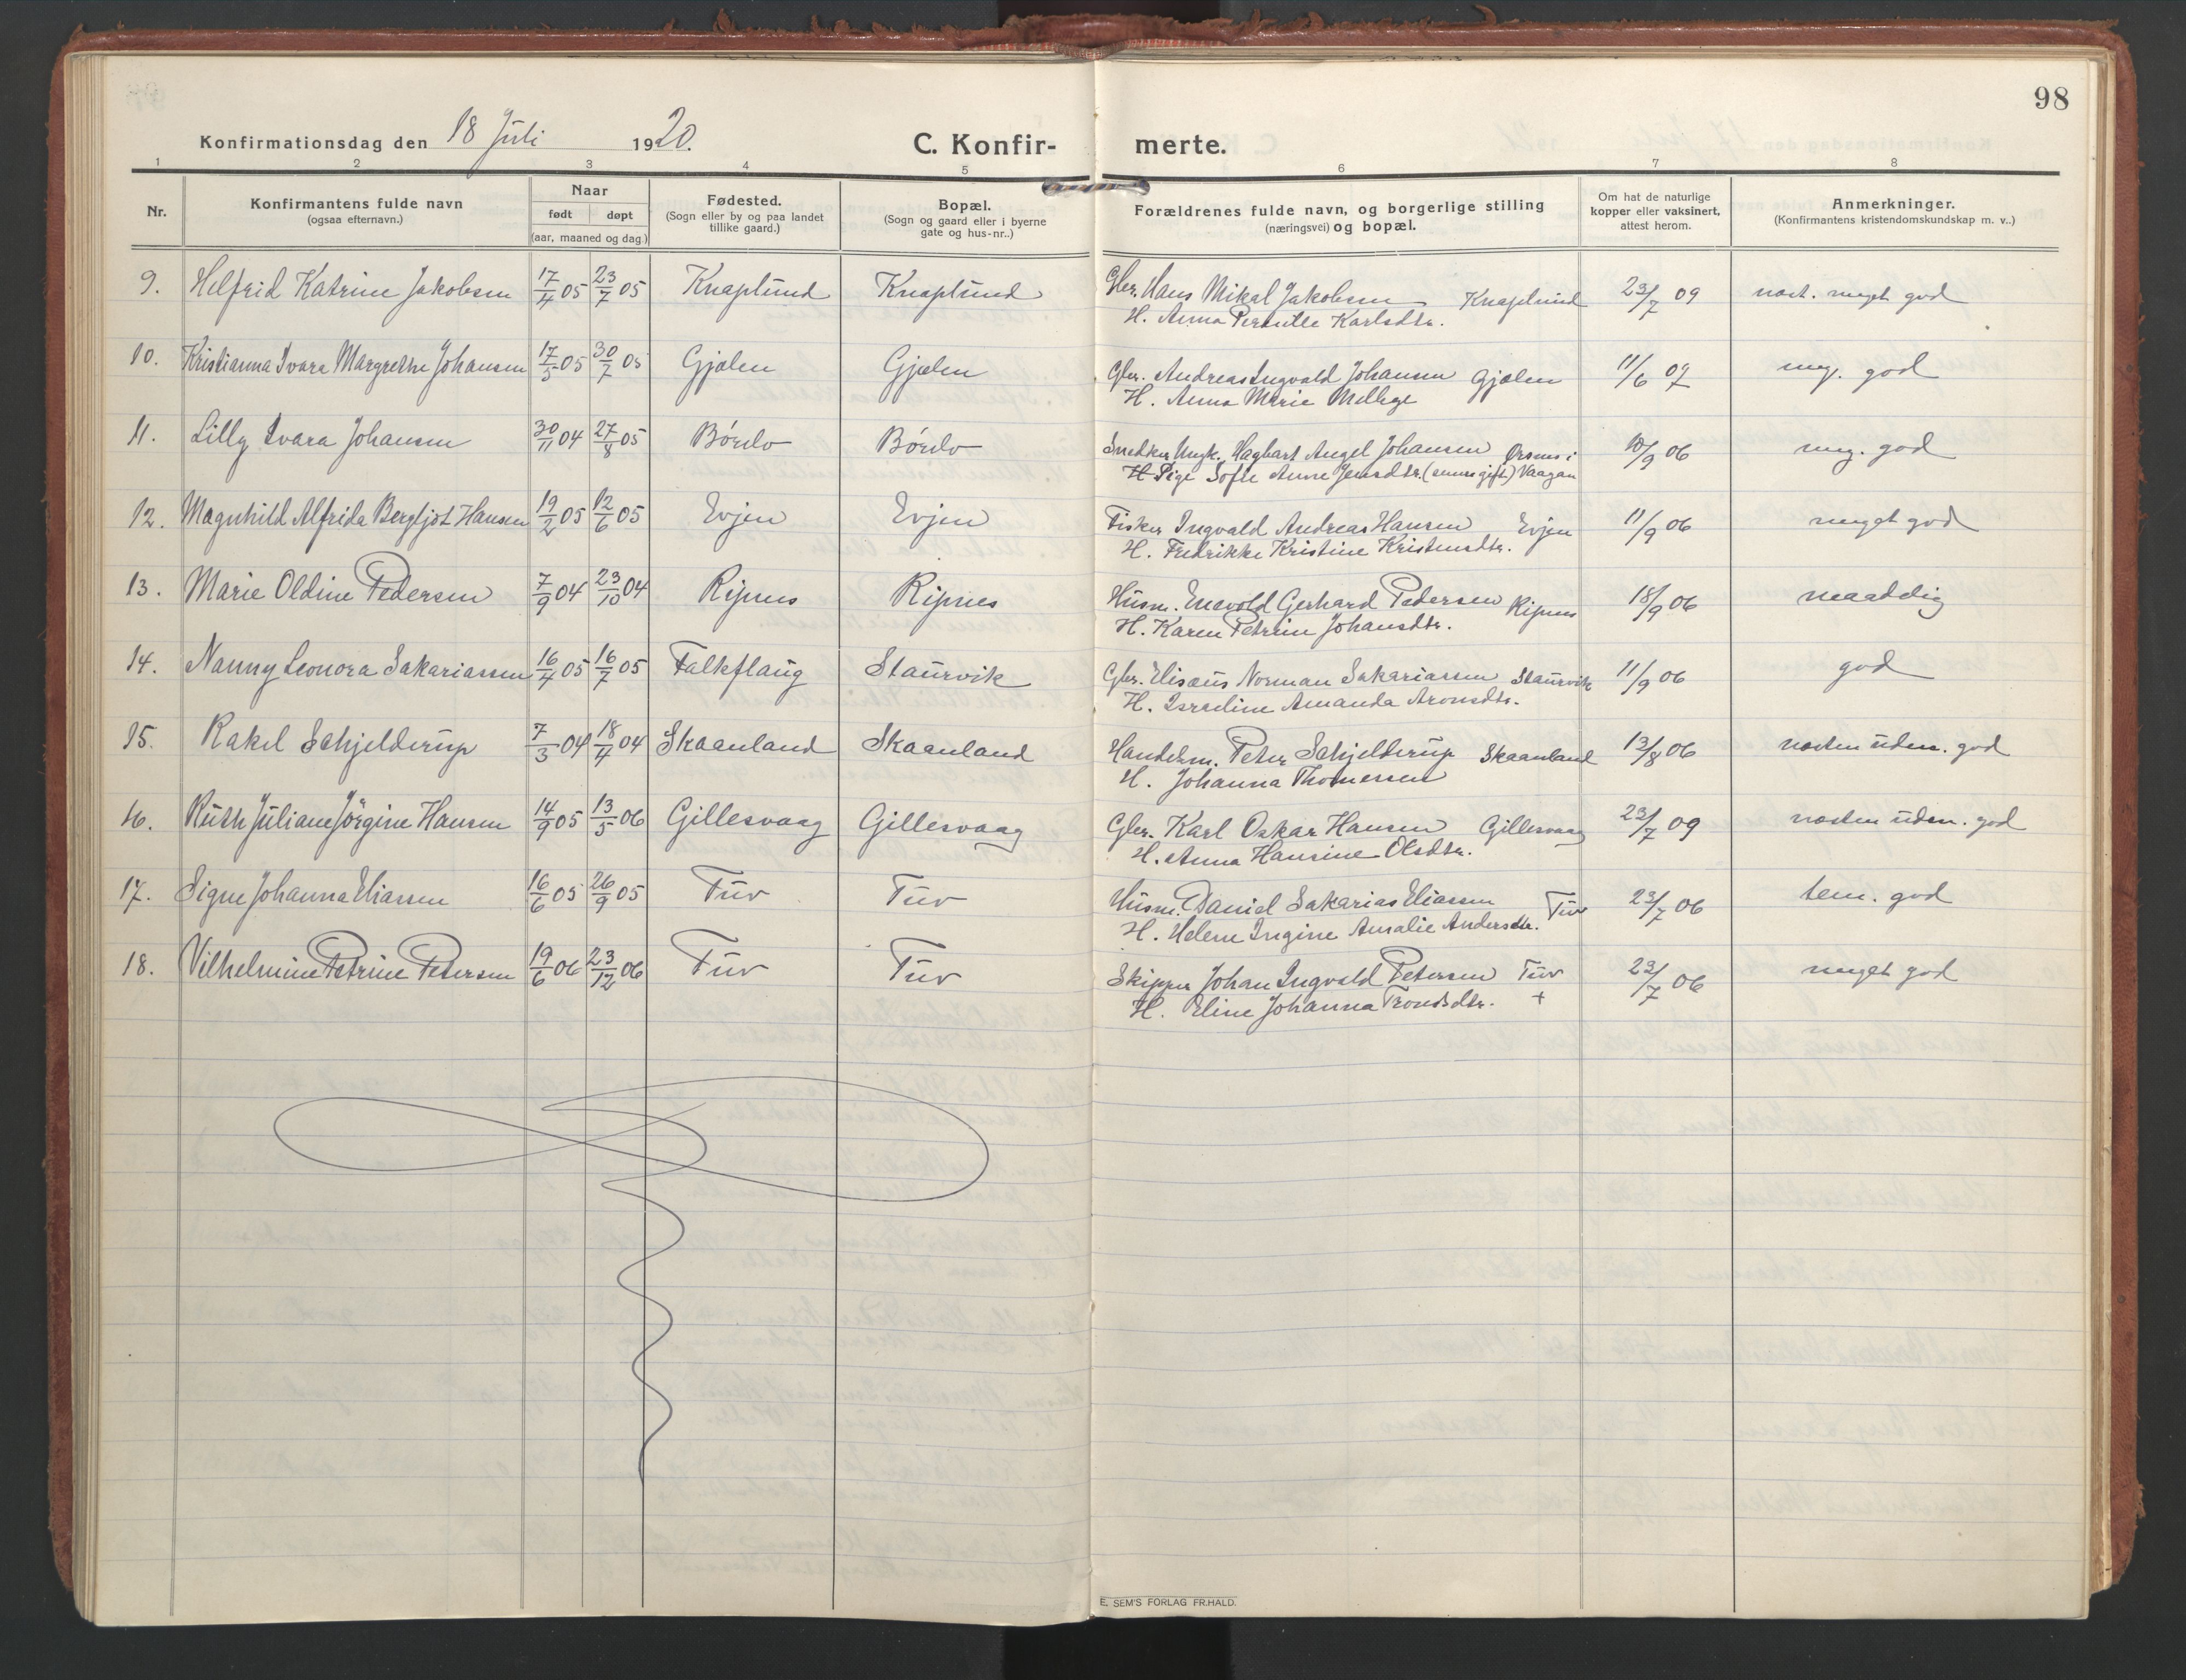 98
Konfirmationsdag den 18 Juli 1920.
C. Konfir- merte.
1 2 3 4 5 6 7 8
Nr.
Konfirmantens fulde navn
(ogsaa efternavn.)
Naar
født døpt
(aar, maaned og dag)
Fødested.
(Sogn eller by og paa landet
tillike gaard.)
Bopæl.
(Sogn og gaard eller i byerne
gate og hus-nr..)
Forældrenes fulde navn, og borgerlige stilling
(næringsvei) og bopæl.
Om hat de naturlige
kopper eller vaksinert,
attest herom.
Anmerkninger.
(Konfirmantens kristendomskundskap m. v..)
9. Helfrid Katrine Jakobsen 17/4 05 23/7 05 Knaplund Knaplund Gbr. Hans Mikal Jakobsen Knaplund 23/7 09 næst. meget god
H. Anna Pernille Karlsdtr.
10. Kristianna Ivara Margrethe Johansen 17/5 05 30/7 05 Gjælen Gjælen Gbr. Andreas Ingvald Johansen Gjælen 11/6 07 meg. god
H. Anna Marie
11. Lilly Ivara Johansen 30/11 04 27/8 05 Børelv Børelv Snedker Ungk. Hagbart Angel Johansen Ørsnes i 10/9 06 meg. god
H Pige Sofie Anne Jensdtr. (senere gift) Vaagan
12. Magnhild Alfrida Bergljot Hansen 19/2 05 12/6 05 Evjen Evjen Fisker Ingvald Andreas Hansen Evjen 11/9 06 meget god
H. Fredrikke Kristine Kristensdtr.
13. Marie Oldine Pedersen 7/9 04 23/10 04 Ripnes Ripnes Husm. Enevold Gerhard Pedersen Ripnes 18/9 06 maadelig
H. Karen Petrine Johansdtr.
14. Nanny Leonora Sakariassen 16/4 05 16/7 05 Falkflaug Staurvik Gbr. Elisæus Norman Sakariassen Staurvik 11/9 06 god
H. Israeline Amanda Aronsdtr.
15. Rakel Schjelderup 7/3 04 18/4 04 Skaanland Skaanland Handelsm. Peter Schjelderup Skaanland 13/8 06 næsten udm. god
H. Johanna Thomessen
16. Ruth Juliane Jörgine Hansen 14/9 05 13/5 06 Gillesvaag Gillesvaag Gbr. Karl Oskar Hansen Gillesvaag 23/7 09 næsten udm. god
H. Anna Hansine Olsdtr.
17. Signe Johanna Eliassen 16/6 05 26/9 05 Tuv Tuv Husm. Daniel Sakarias Eliassen Tuv 23/7 06 tem. god
H. Helene Ingine Amalie Andersdtr.
18. Vilhelmine Petrine Petersen 19/6 06 23/12 06 Tuv Tuv Skipper Johan Ingvald Petersen Tuv 23/7 06 meget god
H. Eline Johanna Trondsdtr. +
E. SEM'S FORLAG FR.HALD.